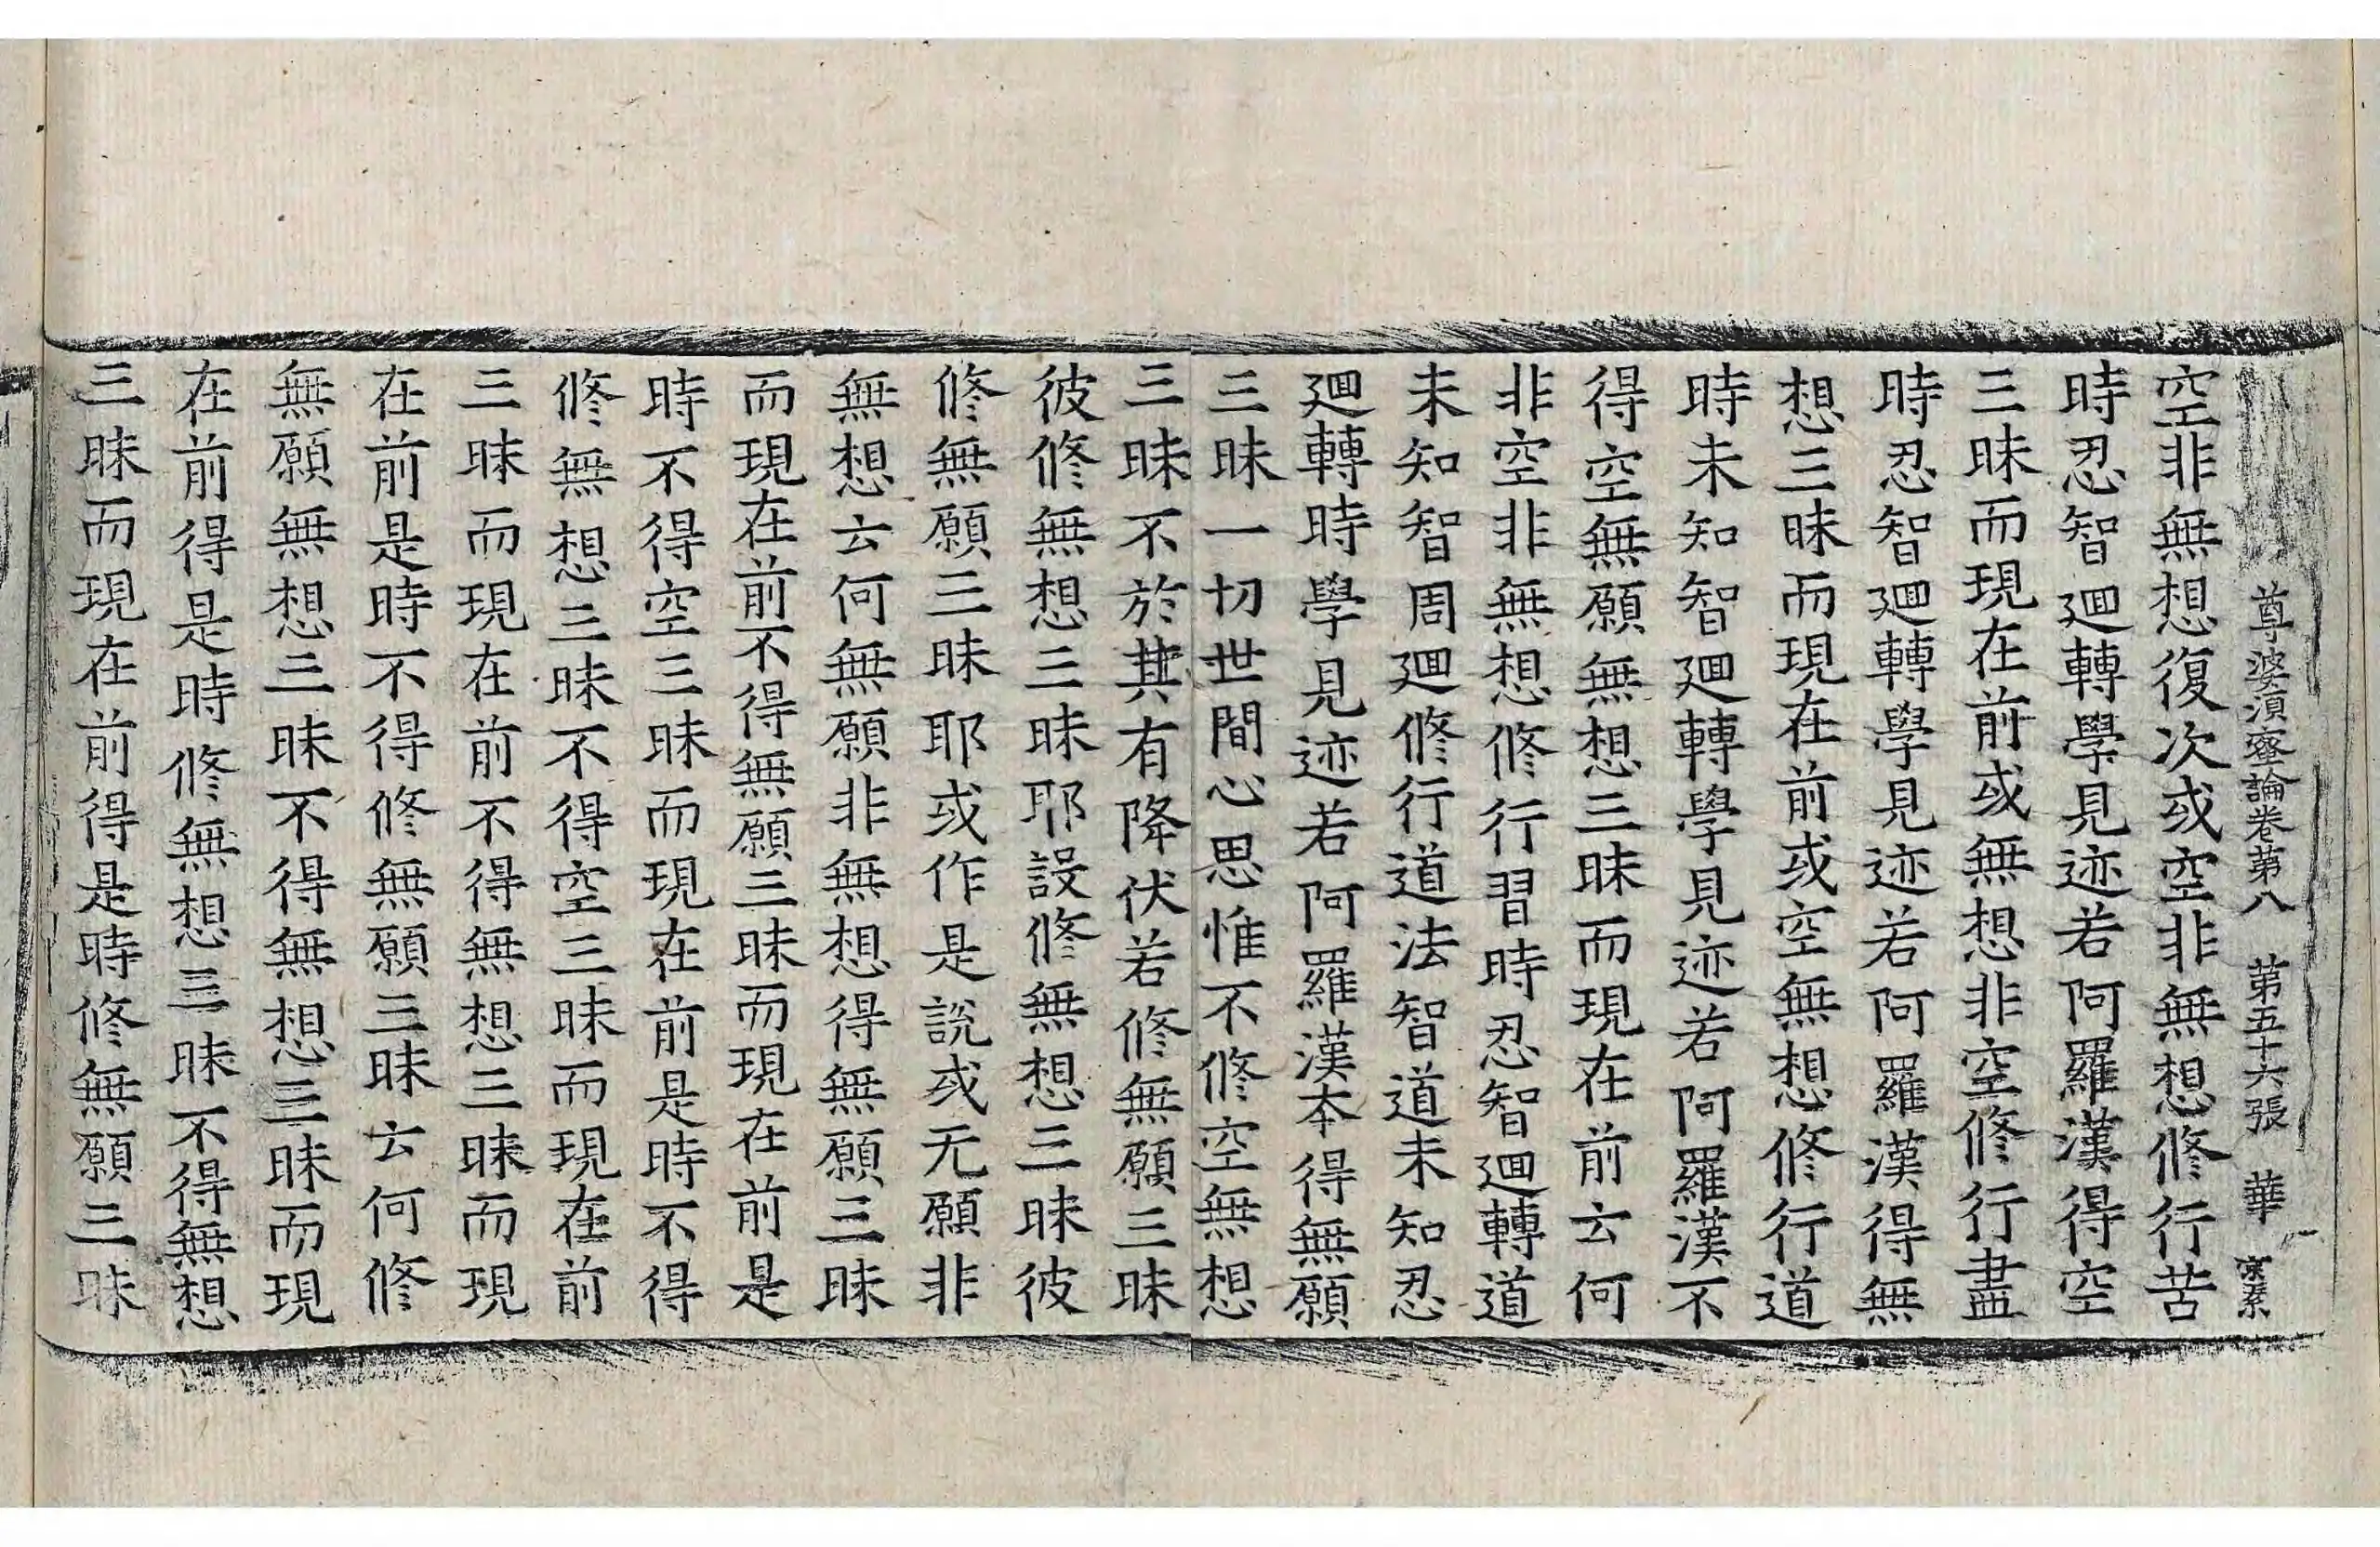 尊婆湏蜜論卷第八　第五十六張　華
空非無想復次或空非無想修行苦
時忍智廻轉學見迹若阿羅漢得空
三昧而現在前或無想非空修行盡
時忍智廻轉學見迹若阿羅漢得無
想三昧而現在前或空無想修行道
時未知智廻轉學見迹若阿羅漢不
得空無願無想三昧而現在前云何
非空非無想修行習時忍智廻轉道
未知智周廻修行道法智道未知忍
廻轉時學見迹若阿羅漢本得無願
三昧一切世間心思惟不修空無想
三昧不於其有降伏若修無願三昧
彼修無想三昧耶設修無想三昧彼
修無願三昧耶或作是說或无願非
無想云何無願非無想得無願三昧
而現在前不得無願三昧而現在前是
時不得空三昧而現在前是時不得
修無想三昧不得空三昧而現在前
三昧而現在前不得無想三昧而現
在前是時不得修無願三昧云何修
無願無想三昧不得無想三昧而現
在前得是時修無想三昧不得無想
三昧而現在前得是時修無願三昧